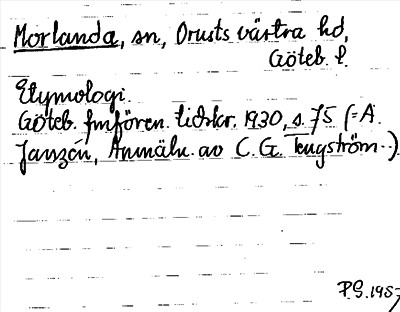 Morlanda, sn, Orusts västra hd,
Göteb. l.
Etymologi.
Göteb. fmfören. tidskr. 1930, s. 75 (=A.
Janzén, Anmäln. av C. G. Tengström..)
P.G. 195